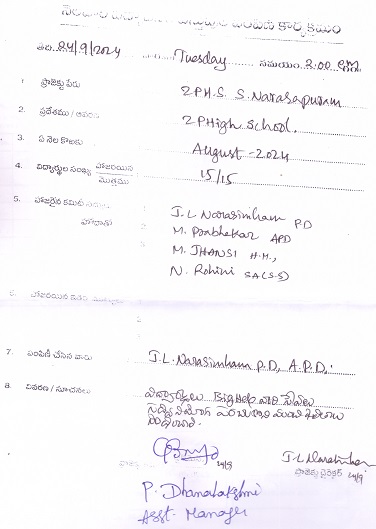 కార్యక్రమం
తేది. 24/9/2024 Tuesday సమయం. 2:00
1. ప్రాజెక్టు పేరు Z.P.H.S. S. Narasapuram
2. ప్రదేశము / Z P High School.
3. ఏ నెల కొరకు August - 2024
4. విద్యార్థుల సంఖ్య హాజరయిన / మొత్తము 15/15
5. హాజరైన కమిటీ J. L Narasimham P.D
M. Prabhakar APD
M. JHANSI H.M.,
N. Rohini SA (S.S)
6. హాజరయిన
7. పంపిణీ చేసిన వారు J. L. Narasimham P.D, A.P.D.
8. వివరణ / సూచనలు విద్యార్థులు BigHelp వారి సేవలు
24/9 J L Narasimham
ప్రాజెక్టు డైరెక్టర్ 24/9
P. Dhanalakshmi
Asst. Manager